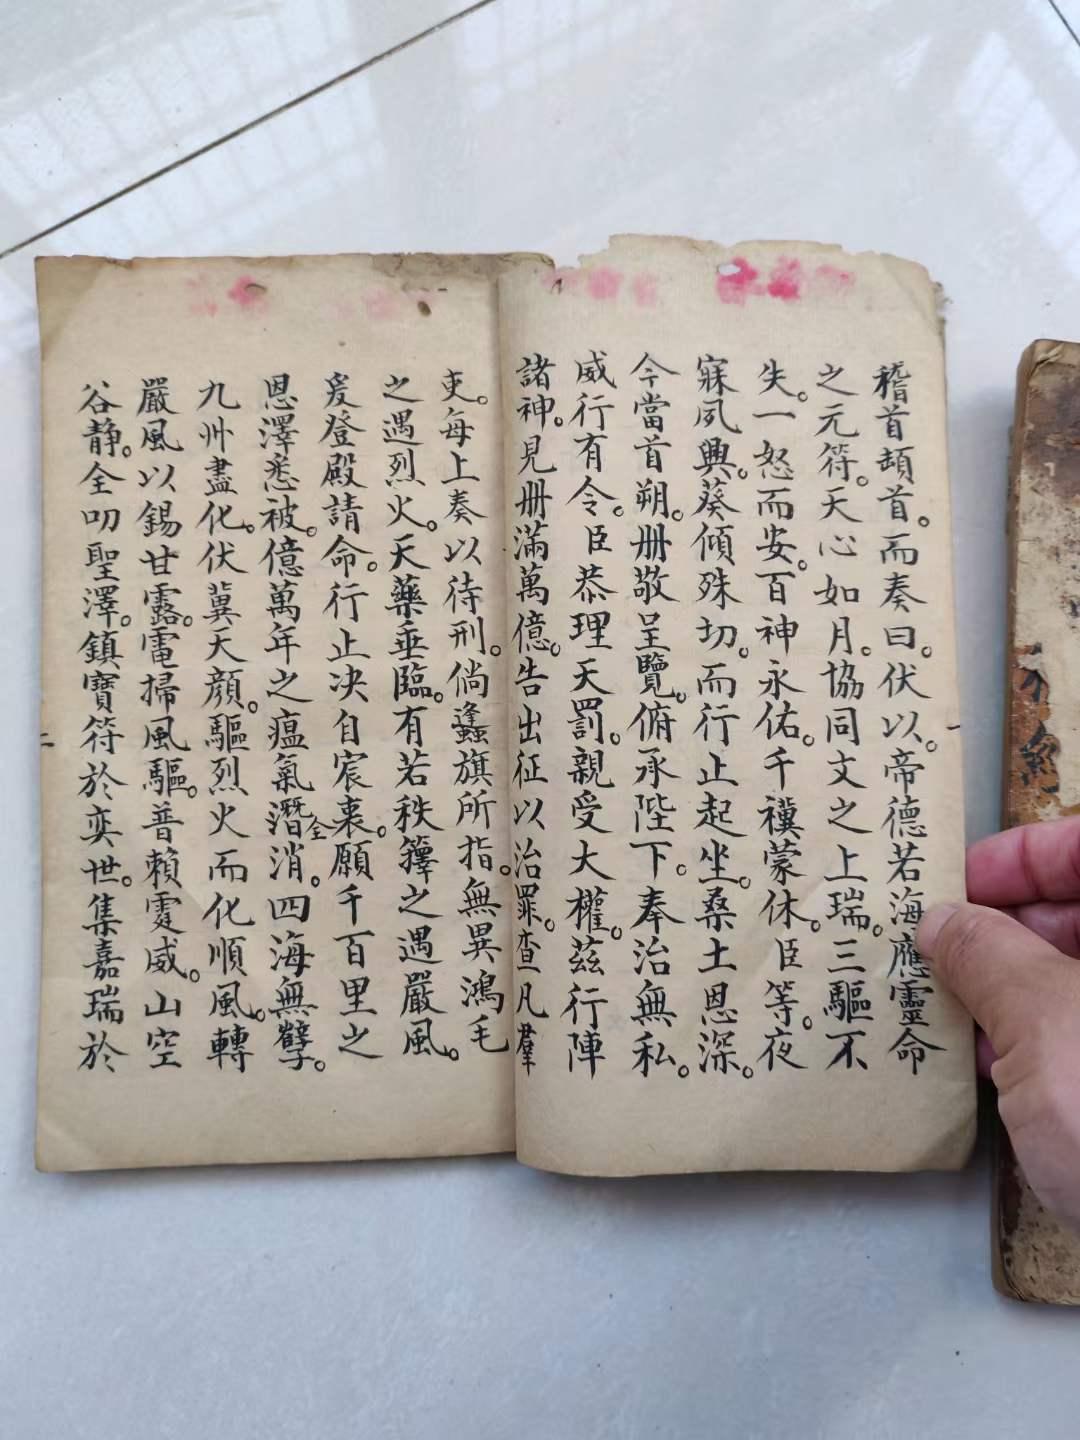 稽首頓首。而奏曰。伏以。帝德若海。應靈命
之元符。天心如月。協同文之上瑞。三驅不
失。一怒而安。百神永佑。千禩蒙休。臣等。夜
寐夙興。葵傾殊切。而行止起坐。桑土恩深。
今當首朔。冊敬呈覽。俯承陛下。奉治無私。
威行有令。臣恭理天罰。親受大權。茲行陣
諸神。見冊滿萬億。告出征以治罪。查凡羣
吏。每上奏以待刑。倘蠭旗所指。無異鴻毛
之遇烈火。天藥垂臨。有若秩籜之遇嚴風。
爰登殿請命。行止决自宸衷。願千百里之
恩澤悉被。億萬年之瘟氣潛全消。四海無孽。
九州盡化。伏冀天顏。驅烈火而化順風。轉
嚴風以錫甘露。電掃風驅。普賴霆威。山空
谷静。全叨聖澤。鎮寶符於奕世。集嘉瑞於
二